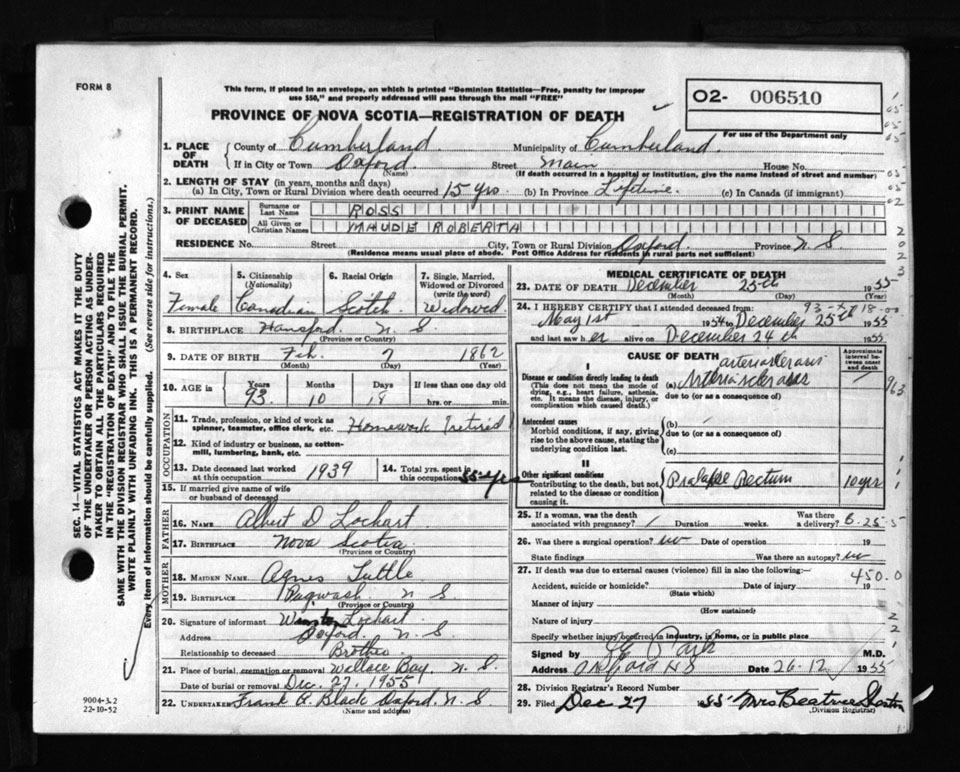 FORM 8
This form, if placed in an envelope, on which is printed "Dominion Statistics—Free, penalty for improper
use $50," and properly addressed will pass through the mail "FREE"
PROVINCE OF NOVA SCOTIA—REGISTRATION OF DEATH
O2- 006510
For use of the Department only
1. PLACE OF DEATH
County of Cumberland Municipality of Cumberland.
If in City or Town Oxford. Street Main House No.
(Name) (If death occurred in a hospital or institution, give the name instead of street and number)
2. LENGTH OF STAY (in years, months and days)
(a) In City, Town or Rural Division where death occurred 15 yrs. (b) In Province Lifetime. (c) In Canada (if immigrant)
3. PRINT NAME OF DECEASED
Surname or Last Name ROSS
All Given or Christian Names MAUDIE ROBERTA
RESIDENCE No. Street City, Town or Rural Division Oxford. Province N. S.
(Residence means usual place of abode. Post Office Address for residents in rural parts not sufficient)
4. Sex
Female
5. Citizenship
(Nationality)
Canadian
6. Racial Origin
Scotch
7. Single, Married,
Widowed or Divorced
(write the word)
Widowed
8. BIRTHPLACE Hansford. N. S.
(Province or Country)
9. DATE OF BIRTH Feb. 7 1862
(Month) (Day) (Year)
10. AGE in
Years Months Days If less than one day old
93. 10 18 hrs. or min.
OCCUPATION
11. Trade, profession, or kind of work as
spinner, teamster, office clerk, etc. Homework (retired)
12. Kind of industry or business, as cotton-
mill, lumbering, bank, etc.
13. Date deceased last worked
at this occupation 1939
14. Total yrs. spent
in this occupation 55 yrs
15. If married give name of wife
or husband of deceased
FATHER
16. NAME Albert D Lockart
17. BIRTHPLACE Nova Scotia
(Province or Country)
MOTHER
18. MAIDEN NAME Agnes Tuttle
19. BIRTHPLACE Pugwash N S
(Province or Country)
20. Signature of informant Winston Lockart
Address Oxford. N. S
Relationship to deceased Brother
21. Place of burial, cremation or removal Wallace Bay, N. S.
Date of burial or removal Dec. 27. 1955
22. UNDERTAKER Frank A. Black Oxford. N. S
(Name and address)
MEDICAL CERTIFICATE OF DEATH
23. DATE OF DEATH December 25th 1955
(Month) (Day) (Year)
24. I HEREBY CERTIFY that I attended deceased from:
May 1st 1954 to December 25th 1955
and last saw h er alive on December 24th 1955
CAUSE OF DEATH
Approximate
interval be-
tween onset
and death
I
Disease or condition directly leading to death
(This does not mean the mode of
dying, e.g., heart failure, asthenia,
etc. It means the disease, injury, or
complication which caused death.)
arteriosclerosis
(a) Arteriosclerosis
due to (or as a consequence of)
Antecedent causes
Morbid conditions, if any, giving
rise to the above cause, stating the
underlying condition last.
(b)
due to (or as a consequence of)
(c)
II
Other significant conditions
contributing to the death, but not
related to the disease or condition
causing it.
Prolapse Rectum 10 yrs
25. If a woman, was the death
associated with pregnancy? Duration weeks. Was there
a delivery?
26. Was there a surgical operation? no Date of operation 19
State findings Was there an autopsy? no
27. If death was due to external causes (violence) fill in also the following:—
450.0
Accident, suicide or homicide? Date of injury 19
(State which)
Manner of injury
(How sustained)
Nature of injury
Specify whether injury occurred in industry, in home, or in public place
Signed by M.D.
Address Oxford NS Date 26.12 1955
28. Division Registrar's Record Number
29. Filed Dec 27 1955 Mrs Beatrice
(Division Registrar)
SEC. 14—VITAL STATISTICS ACT MAKES IT THE DUTY
OF THE UNDERTAKER OR PERSON ACTING AS UNDER-
TAKER TO OBTAIN ALL THE PARTICULARS REQUIRED
IN THE "REGISTRATION OF DEATH" AND TO FILE THE
SAME WITH THE DIVISION REGISTRAR WHO SHALL ISSUE THE BURIAL PERMIT.
WRITE PLAINLY WITH UNFADING INK. THIS IS A PERMANENT RECORD.
Every item of information should be carefully supplied. (See reverse side for instructions.)
9004-3.2
22-10-52